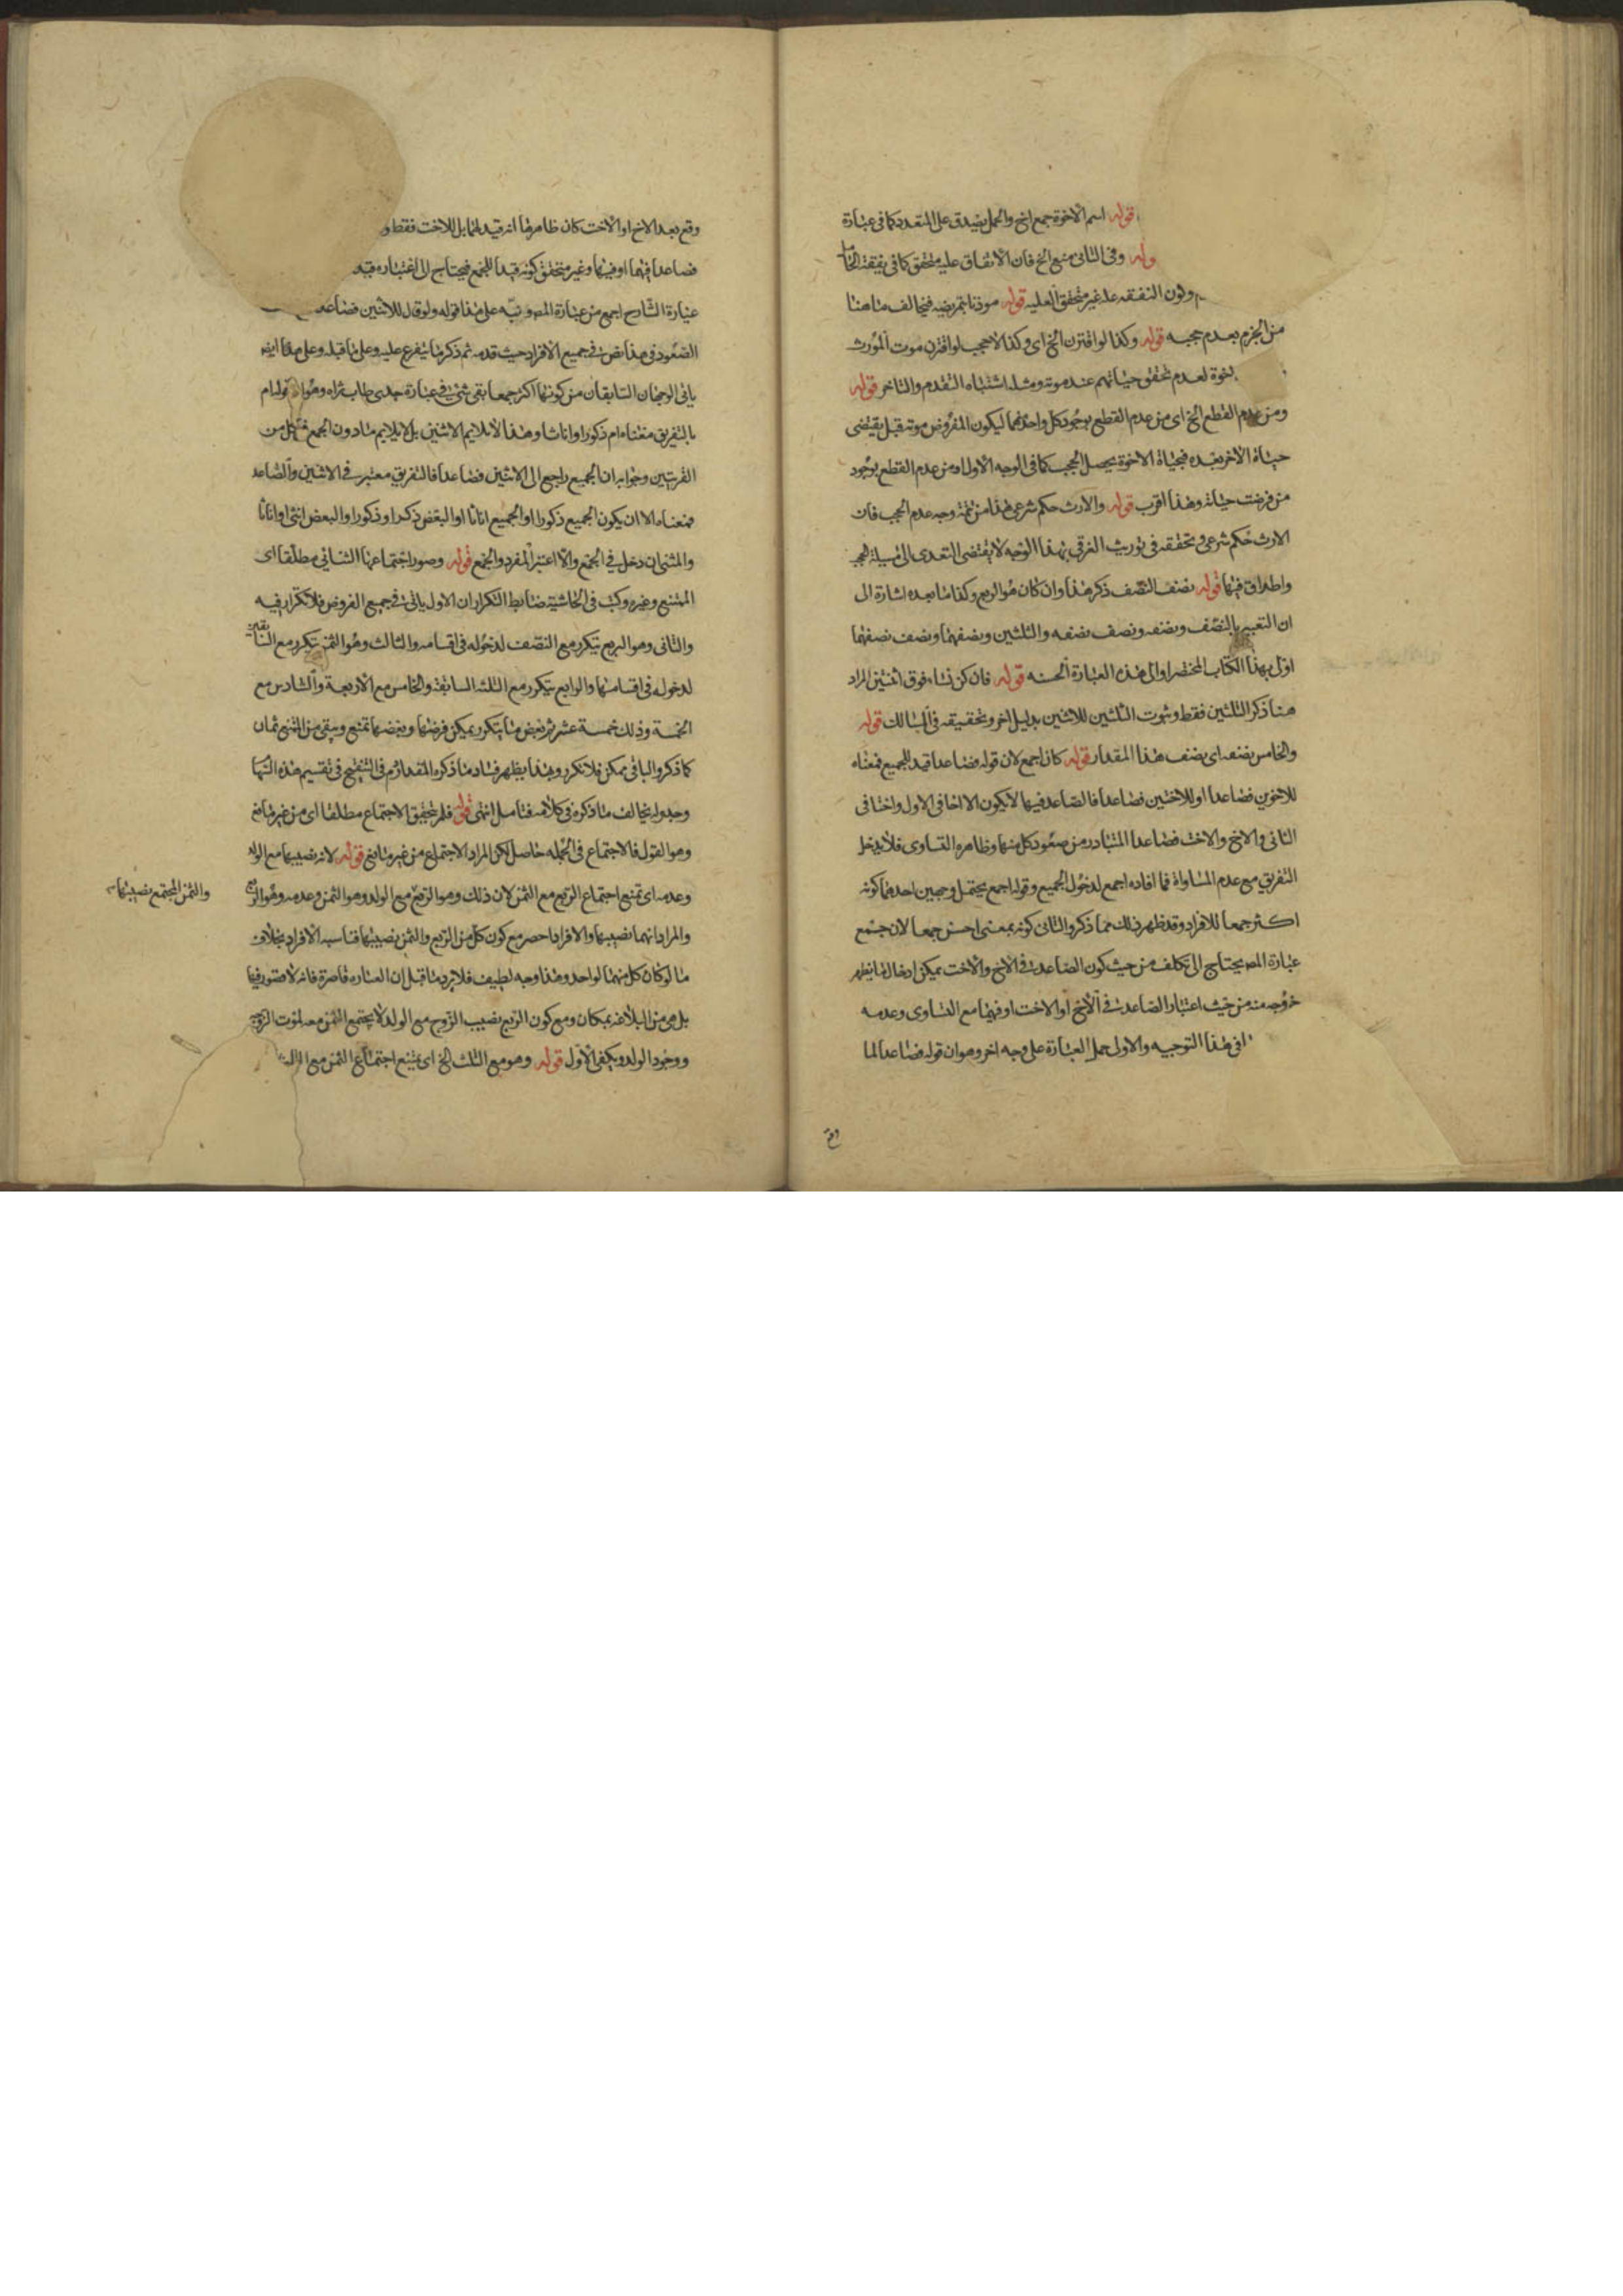 قوله اسم الاخوة جمع اخ والحمل يصدق على المتعدد كما في عبارة
وله وفي الثاني منع الخ فان الانفاق عليه متحقق كما في نفقة الحامل
وكون النفقة عليه غير متحقق العليه قوله موذنا بتمريضه فيخالف ما هنا
من الجزم بعدم حجبه قوله وكذا لو اقترن الخ اى وكذا لا حجب لو اقترن موت المورث
لعدم تحقق حياتهم عند موته ومثله اشتباه التقدم والتاخر قوله
ومن عدم القطع الخ اى من عدم القطع بوجود كل واحد منهما ليكون المفروض موته قبل يقتضى
حياة الاخر بعده فبحياة الاخوة يحصل الحجب كما في الوجه الاول ومن عدم القطع بوجود
من فرضت حياته وهذا اقرب قوله والارث حكم شرعى هذا من تتمة وجه عدم الحجب فان
الارث حكم شرعى وتحققه في توريث الغرقى بهذا الوجه لا يقتضى التعدى الى مسيلة الحجب
واطلاق فيها قوله نصف النصف ذكر هذا وان كان هو الربع وكذا ما بعده اشارة الى
ان التعبير بالنصف ونصفه ونصف نصفه والثلثين ونصفهما ونصف نصفهما
اولى بهذا الكتاب المختصر اوالى هذه العبارة الحسنه قوله فان كن نساء فوق اثنتين المراد
هنا ذكر الثلثين فقط وثبوت الثلثين للاثنين بدليل اخر وتحقيقه في المسالك قوله
والخامس نصفه اى نصف هذا المقدار قوله كان اجمع لان قوله فصاعدا قيد للجميع فمعناه
للاخوين فصاعدا او للاختين فصاعدا فالصاعد فيهما لا يكون الا اخا في الاول واختا في
الثاني وفي الاخ والاخت فصاعدا المتبادر من صعود كل منهما وظاهره التساوى فلا يدخل
التفريق مع عدم المساواة فما افاده اجمع لدخول الجميع وقوله اجمع يحتمل وجهين احدهما كونه
اكثر جمعا للافراد وقد ظهر ذلك مما ذكر والثاني كونه بمعنى احسن جمعا لان جمع
عبارة المص يحتاج الى تكلف من حيث كون الصاعد في الاخ والاخت يمكن ادخال ما يظهر
خروجه منه من حيث اعتبار الصاعد في الاخ او الاخت او فيهما مع التساوى وعدمه
في هذا التوجيه والاولى حمل العبارة على وجه اخر وهو ان قوله فصاعدا لما
وقع
وقع بعد الاخ او الاخت كان ظاهرها انه قيد لهما بل للاخت فقط و
فصاعدا فيهما او فيها وغير متحقق كونه قيدا للجمع فيحتاج الى اعتباره قيد
عبارة الشارح اجمع من عبارة المص ونبه على هذا قوله ولو قال للاثنين فصاعد
الصعود في هذا نص في جميع الافراد حيث قدمه ثم ذكر ما يتفرع عليه وعلى ما قبله وعلى هذا ايضا
ياتى الوجهان السابقان من كونها اكثر جمعا بقى شئ في عبارة جدى طاب ثراه وهو ان قوله ام
بالتفريق معناه ام ذكورا واناثا وهذا لا يلايم الاثنين بل لا يلايم ما دون الجمع من كل من
القريتين وجوابه ان الجميع راجع الى الاثنين فصاعدا فالتفريق معتبر في الاثنين والصاعد
فمعناه الا ان يكون الجميع ذكورا او الجميع اناثا او البعض ذكرا وذكورا والبعض انثى او اناثا
والمثنى ان دخل في الجمع والا اعتبر المفرد والجمع قوله وصور اجتماعها الثنائي مطلقا اى
الممتنع وغيره وكتب في الحاشية ضابط التكرار ان الاول ياتى في جميع الفروض فلا تكرار فيه
والثاني وهو الربع يتكرر مع النصف لدخوله في اقسامه والثالث وهو الثمن يتكرر مع السابقين
لدخوله في اقسامهما والرابع يتكرر مع الثلثة السابقة والخامس مع الاربعة والسادس مع
الخمسة وذلك خمسة عشر ثم بعض ما يتكرر يمكن فرضها وبعضها تمتنع وبقى من الممتنع ثمان
كما ذكر والباقي ممكن فلا تكرر وبهذا يظهر فساد ما ذكره المقداد رحمه في التنقيح في تقسيم هذه السهام
وجدوله يخالف ما ذكره في كلامه فتامل انتهى قوله فلم يتحقق الاجتماع مطلقا اى من غير مانع
وهو القول فالاجتماع في الجمله حاصل لكن المراد الاجتماع من غير مانع قوله لانه نصيبها مع الولد
وعدمه اى تمتنع اجتماع الربع مع الثمن لان ذلك وهو الربع مع الولد وهو الثمن وعدمه وهو الربع
والثمن المجتمع نصيبهما
والمراد انهما نصيبهما والافراد احصر مع كون كل من الربع والثمن نصيبهما فناسبه الافراد بخلاف
ما لو كان كل منهما لواحد وهذا وجه لطيف فلا يرد ما قيل ان العباره قاصرة فانه لا قصور فيها
بل هى من البلاغه بمكان ومع كون الربع نصيب الزوج مع الولد لا يجتمع الثمن معه لموت الزوجة
ووجود الولد ويكفى الاول قوله وهو مع الثلث الخ اى يمتنع اجتماع الثمن مع الثلث